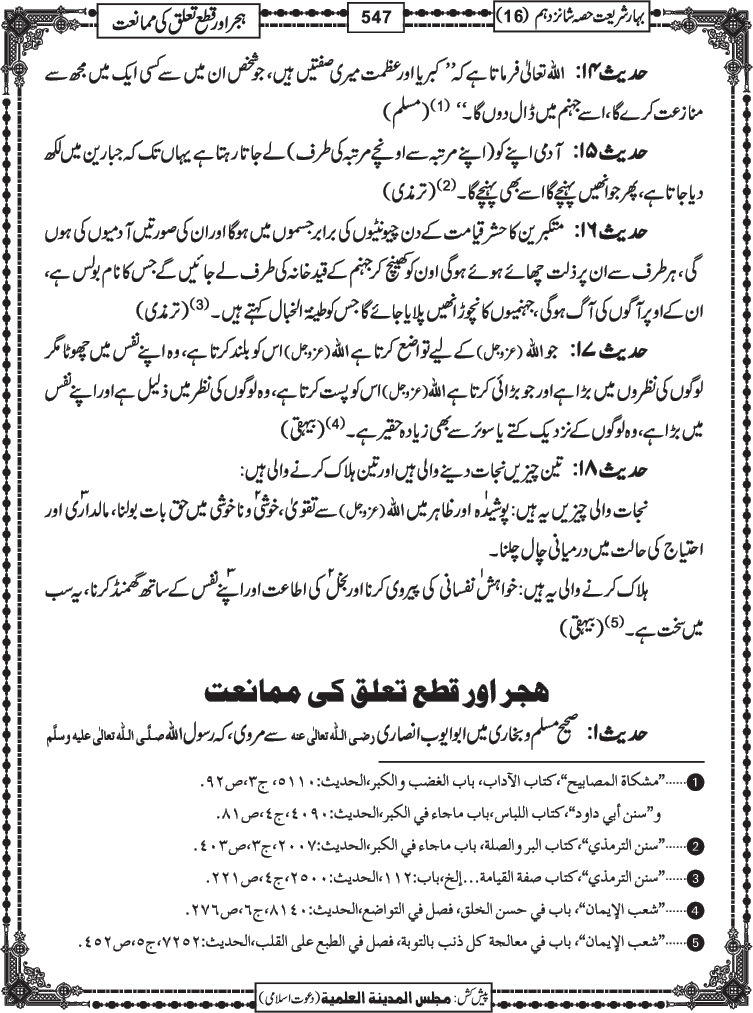 بہارِ شریعت حصہ شانزدہم (16)
547
ہجر اور قطع تعلق کی ممانعت
حدیث ۱۴: اللہ تعالیٰ فرماتا ہے کہ ’’کبریا اور عظمت میری صفتیں ہیں، جو شخص ان میں سے کسی ایک میں مجھ سے
منازعت کرے گا، اسے جہنم میں ڈال دوں گا۔‘‘ (1) (مسلم)
حدیث ۱۵: آدمی اپنے کو (اپنے مرتبہ سے اونچے مرتبہ کی طرف) لے جاتا رہتا ہے یہاں تک کہ جبارین میں لکھ
دیا جاتا ہے، پھر جو انھیں پہنچے گا اسے بھی پہنچے گا۔ (2) (ترمذی)
حدیث ۱۶: متکبرین کا حشر قیامت کے دن چیونٹیوں کی برابر جسموں میں ہوگا اور ان کی صورتیں آدمیوں کی ہوں
گی، ہر طرف سے ان پر ذلت چھائے ہوئے ہوگی اون کو کھینچ کر جہنم کے قید خانہ کی طرف لے جائیں گے جس کا نام بولس ہے،
ان کے اوپر آگوں کی آگ ہوگی، جہنمیوں کا نچوڑ انھیں پلایا جائے گا جس کو طینۃ الخبال کہتے ہیں۔ (3) (ترمذی)
حدیث ۱۷: جو اللہ (عزوجل) کے لیے تواضع کرتا ہے اللہ (عزوجل) اس کو بلند کرتا ہے، وہ اپنے نفس میں چھوٹا مگر
لوگوں کی نظروں میں بڑا ہے اور جو بڑائی کرتا ہے اللہ (عزوجل) اس کو پست کرتا ہے، وہ لوگوں کی نظر میں ذلیل ہے اور اپنے نفس
میں بڑا ہے، وہ لوگوں کے نزدیک کتے یا سوئر سے بھی زیادہ حقیر ہے۔ (4) (بیہقی)
حدیث ۱۸: تین چیزیں نجات دینے والی ہیں اور تین ہلاک کرنے والی ہیں:
نجات والی چیزیں یہ ہیں: پوشیدہ۱ اور ظاہر میں اللہ (عزوجل) سے تقویٰ، خوشی۲ و ناخوشی میں حق بات بولنا، مالداری۳ اور
احتیاج کی حالت میں درمیانی چال چلنا۔
ہلاک کرنے والی یہ ہیں: خواہش۱ نفسانی کی پیروی کرنا اور بخل۲ کی اطاعت اور اپنے۳ نفس کے ساتھ گھمنڈ کرنا، یہ سب
میں سخت ہے۔ (5) (بیہقی)
ہجر اور قطع تعلق کی ممانعت
حدیث ۱: صحیح مسلم و بخاری میں ابوایوب انصاری رضی اللہ تعالیٰ عنہ سے مروی، کہ رسول اللہ صلَّی اللہ تعالیٰ علیہ وسلَّم
1 ......”مشكاة المصابيح“، كتاب الآداب، باب الغضب والكبر، الحديث: ٥١١٠، ج٣، ص٩٢.
و”سنن أبي داود“، كتاب اللباس، باب ماجاء في الكبر، الحديث: ٤٠٩٠، ج٤، ص٨١.
2 ......”سنن الترمذي“، كتاب البر والصلة، باب ماجاء في الكبر، الحديث: ٢٠٠٧، ج٣، ص٤٠٣.
3 ......”سنن الترمذي“، كتاب صفة القيامة...إلخ، باب: ١١٢، الحديث: ٢٥٠٠، ج٤، ص٢٢١.
4 ......”شعب الإيمان“، باب في حسن الخلق، فصل في التواضع، الحديث: ٨١٤٠، ج٦، ص٢٧٦.
5 ......”شعب الإيمان“، باب في معالجة كل ذنب بالتوبة، فصل في الطبع على القلب، الحديث: ٧٢٥٢، ج٥، ص٤٥٢.
پیش کش: مجلس المدینة العلمیة (دعوتِ اسلامی)